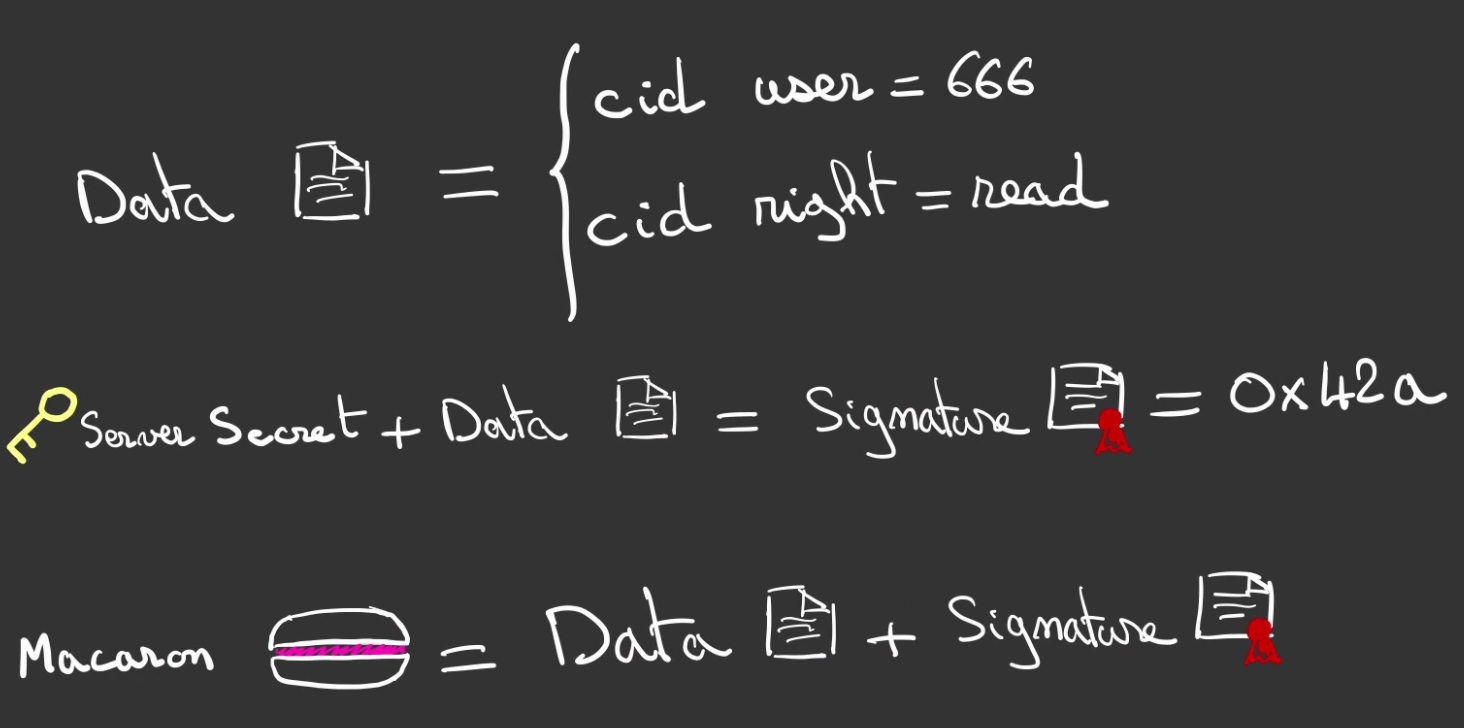 cid user = 666
Data = cid right = read
Server Secret + Data = Signature = 0x42a
Macaron = Data + Signature